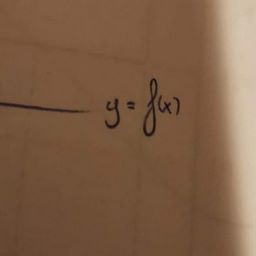 y = f(x)